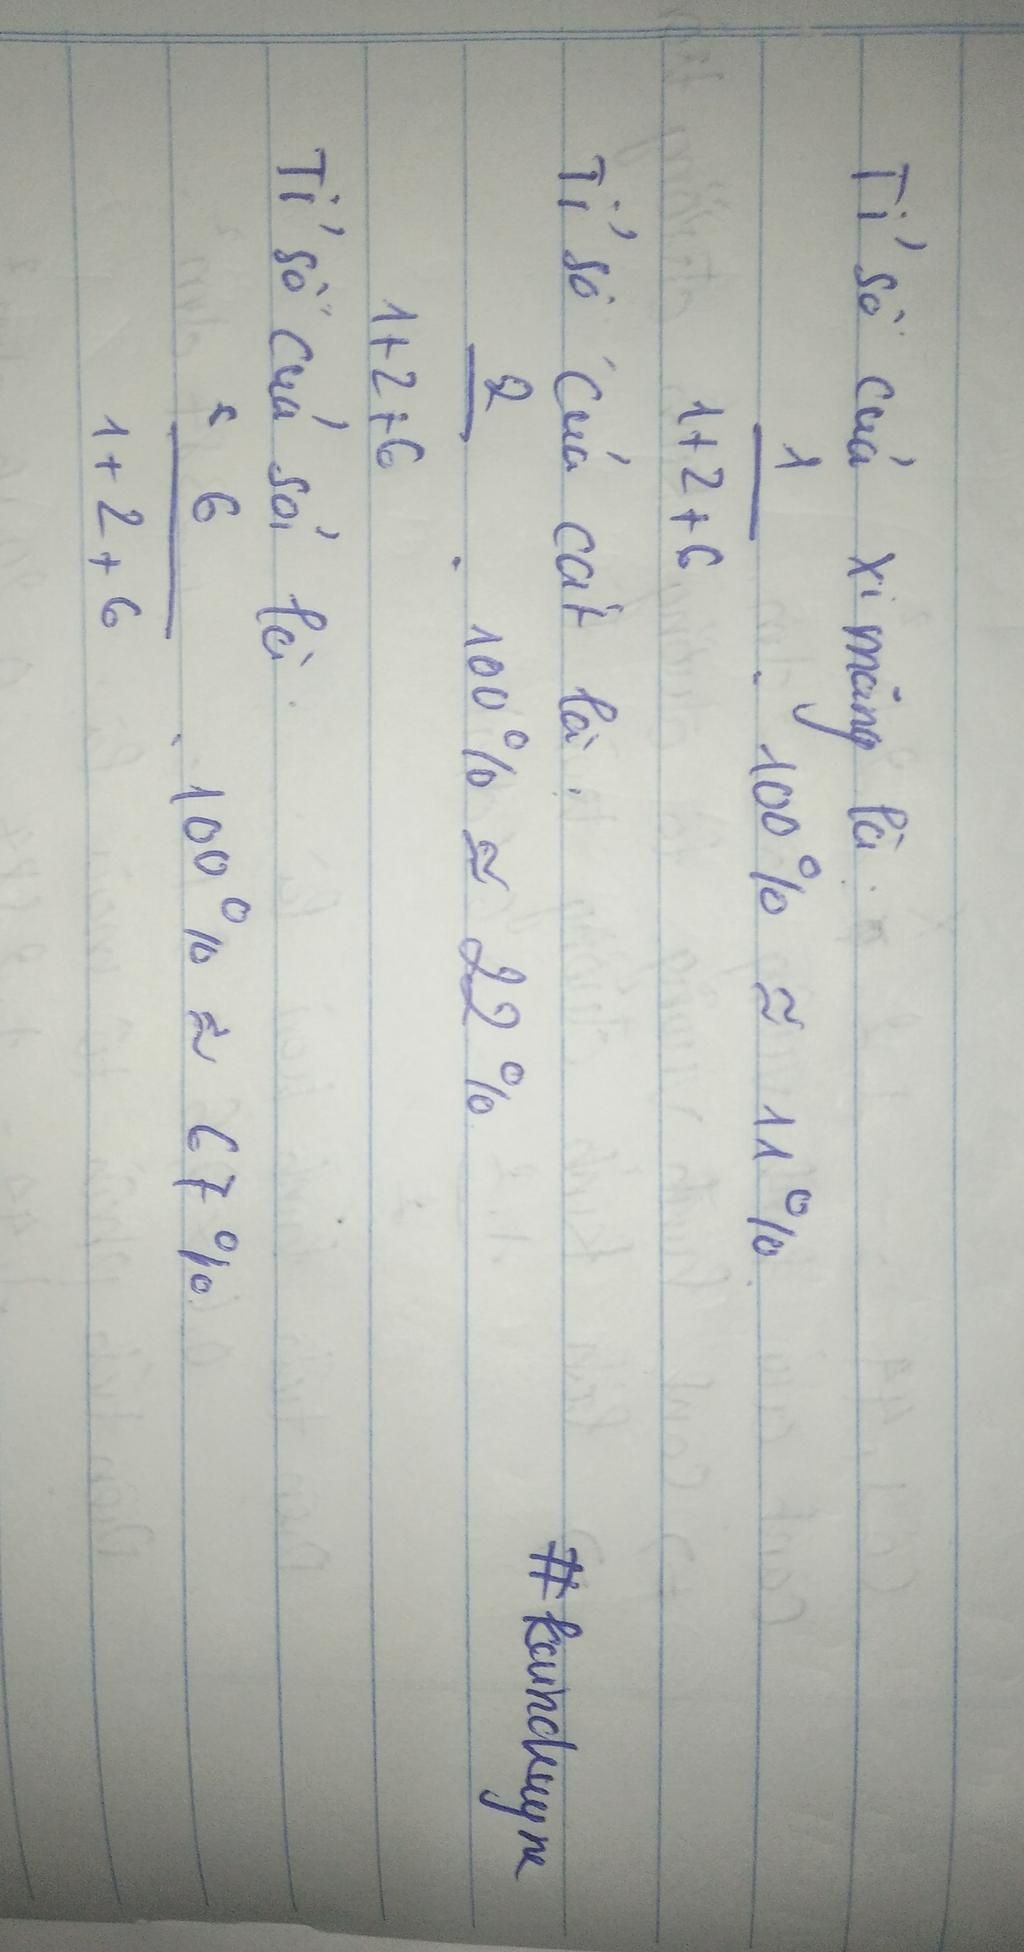 Tỉ số của xi măng là:
1
1+2+6 . 100% ≈ 11%
Tỉ số của cát là:
2
1+2+6 . 100% ≈ 22%
Tỉ số của sỏi là:
6
1+2+6 . 100% ≈ 67%